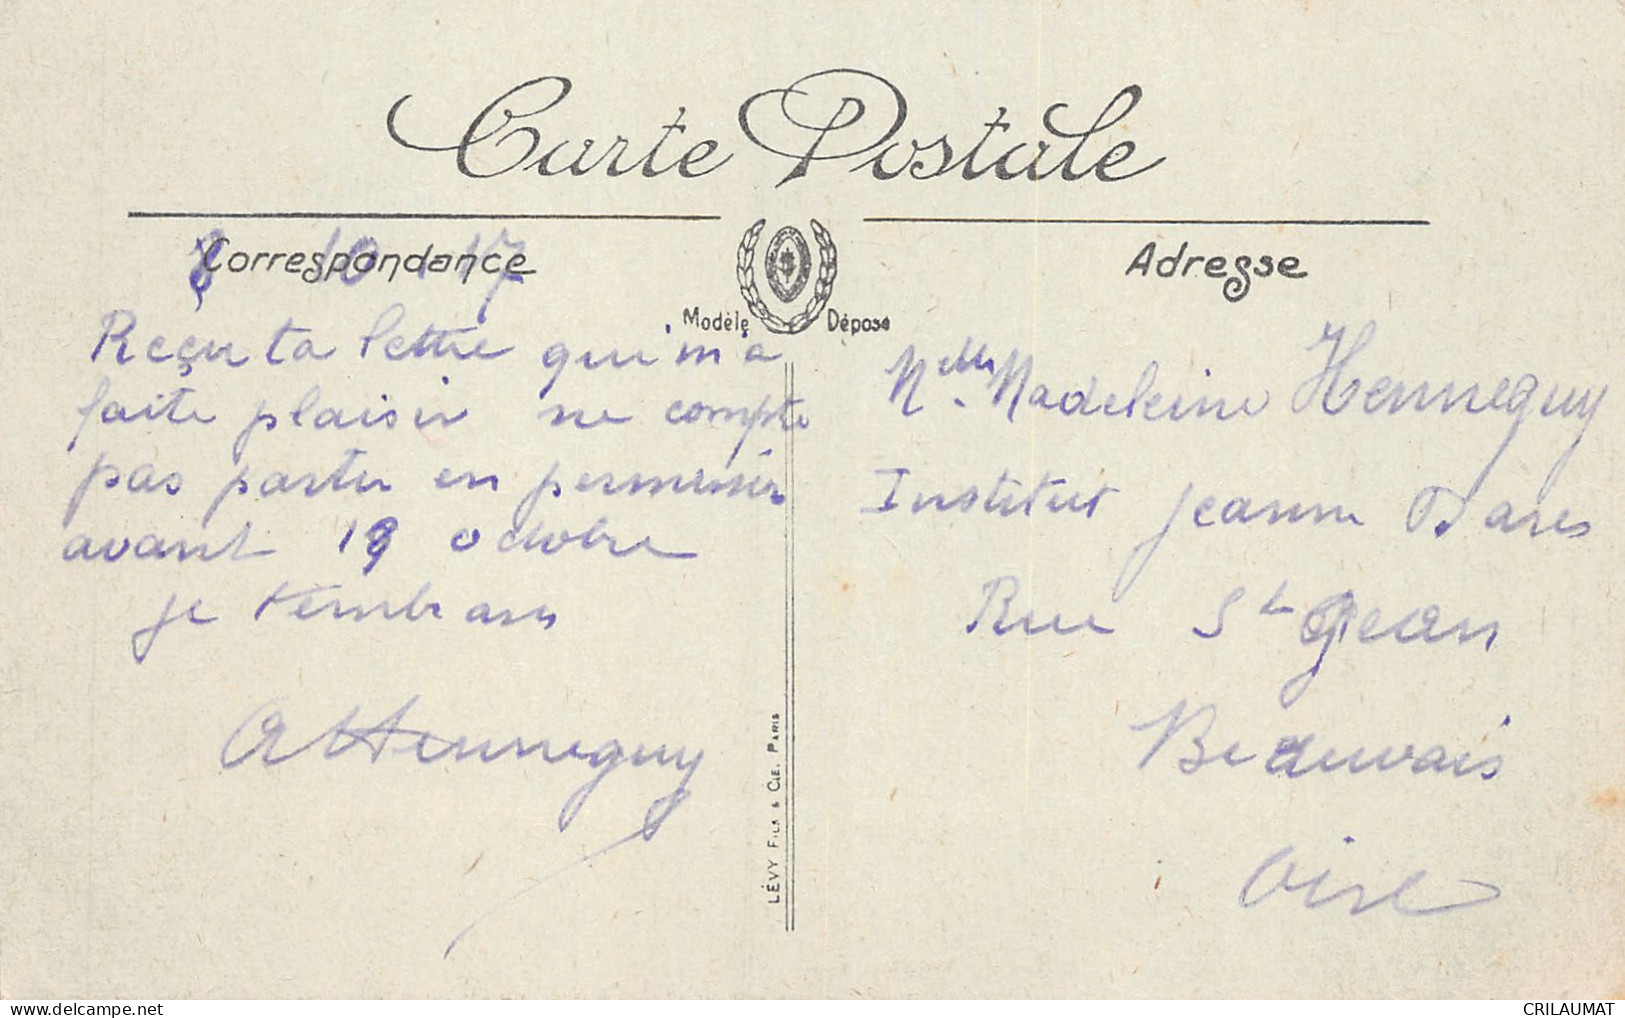 Carte Postale
Correspondance
8 10 17
Adresse
Modèle Déposé
Reçu ta lettre qui m'a
faite plaisir ne compte
pas partir en permission
avant 18 octobre
je t'embrasse
A Henneguy
LÉVY FILS & CIE. PARIS
Melle Madeleine Henneguy
Institut Jeanne Darc
Rue St Jean
Beauvais
Oise
CRILAUMAT